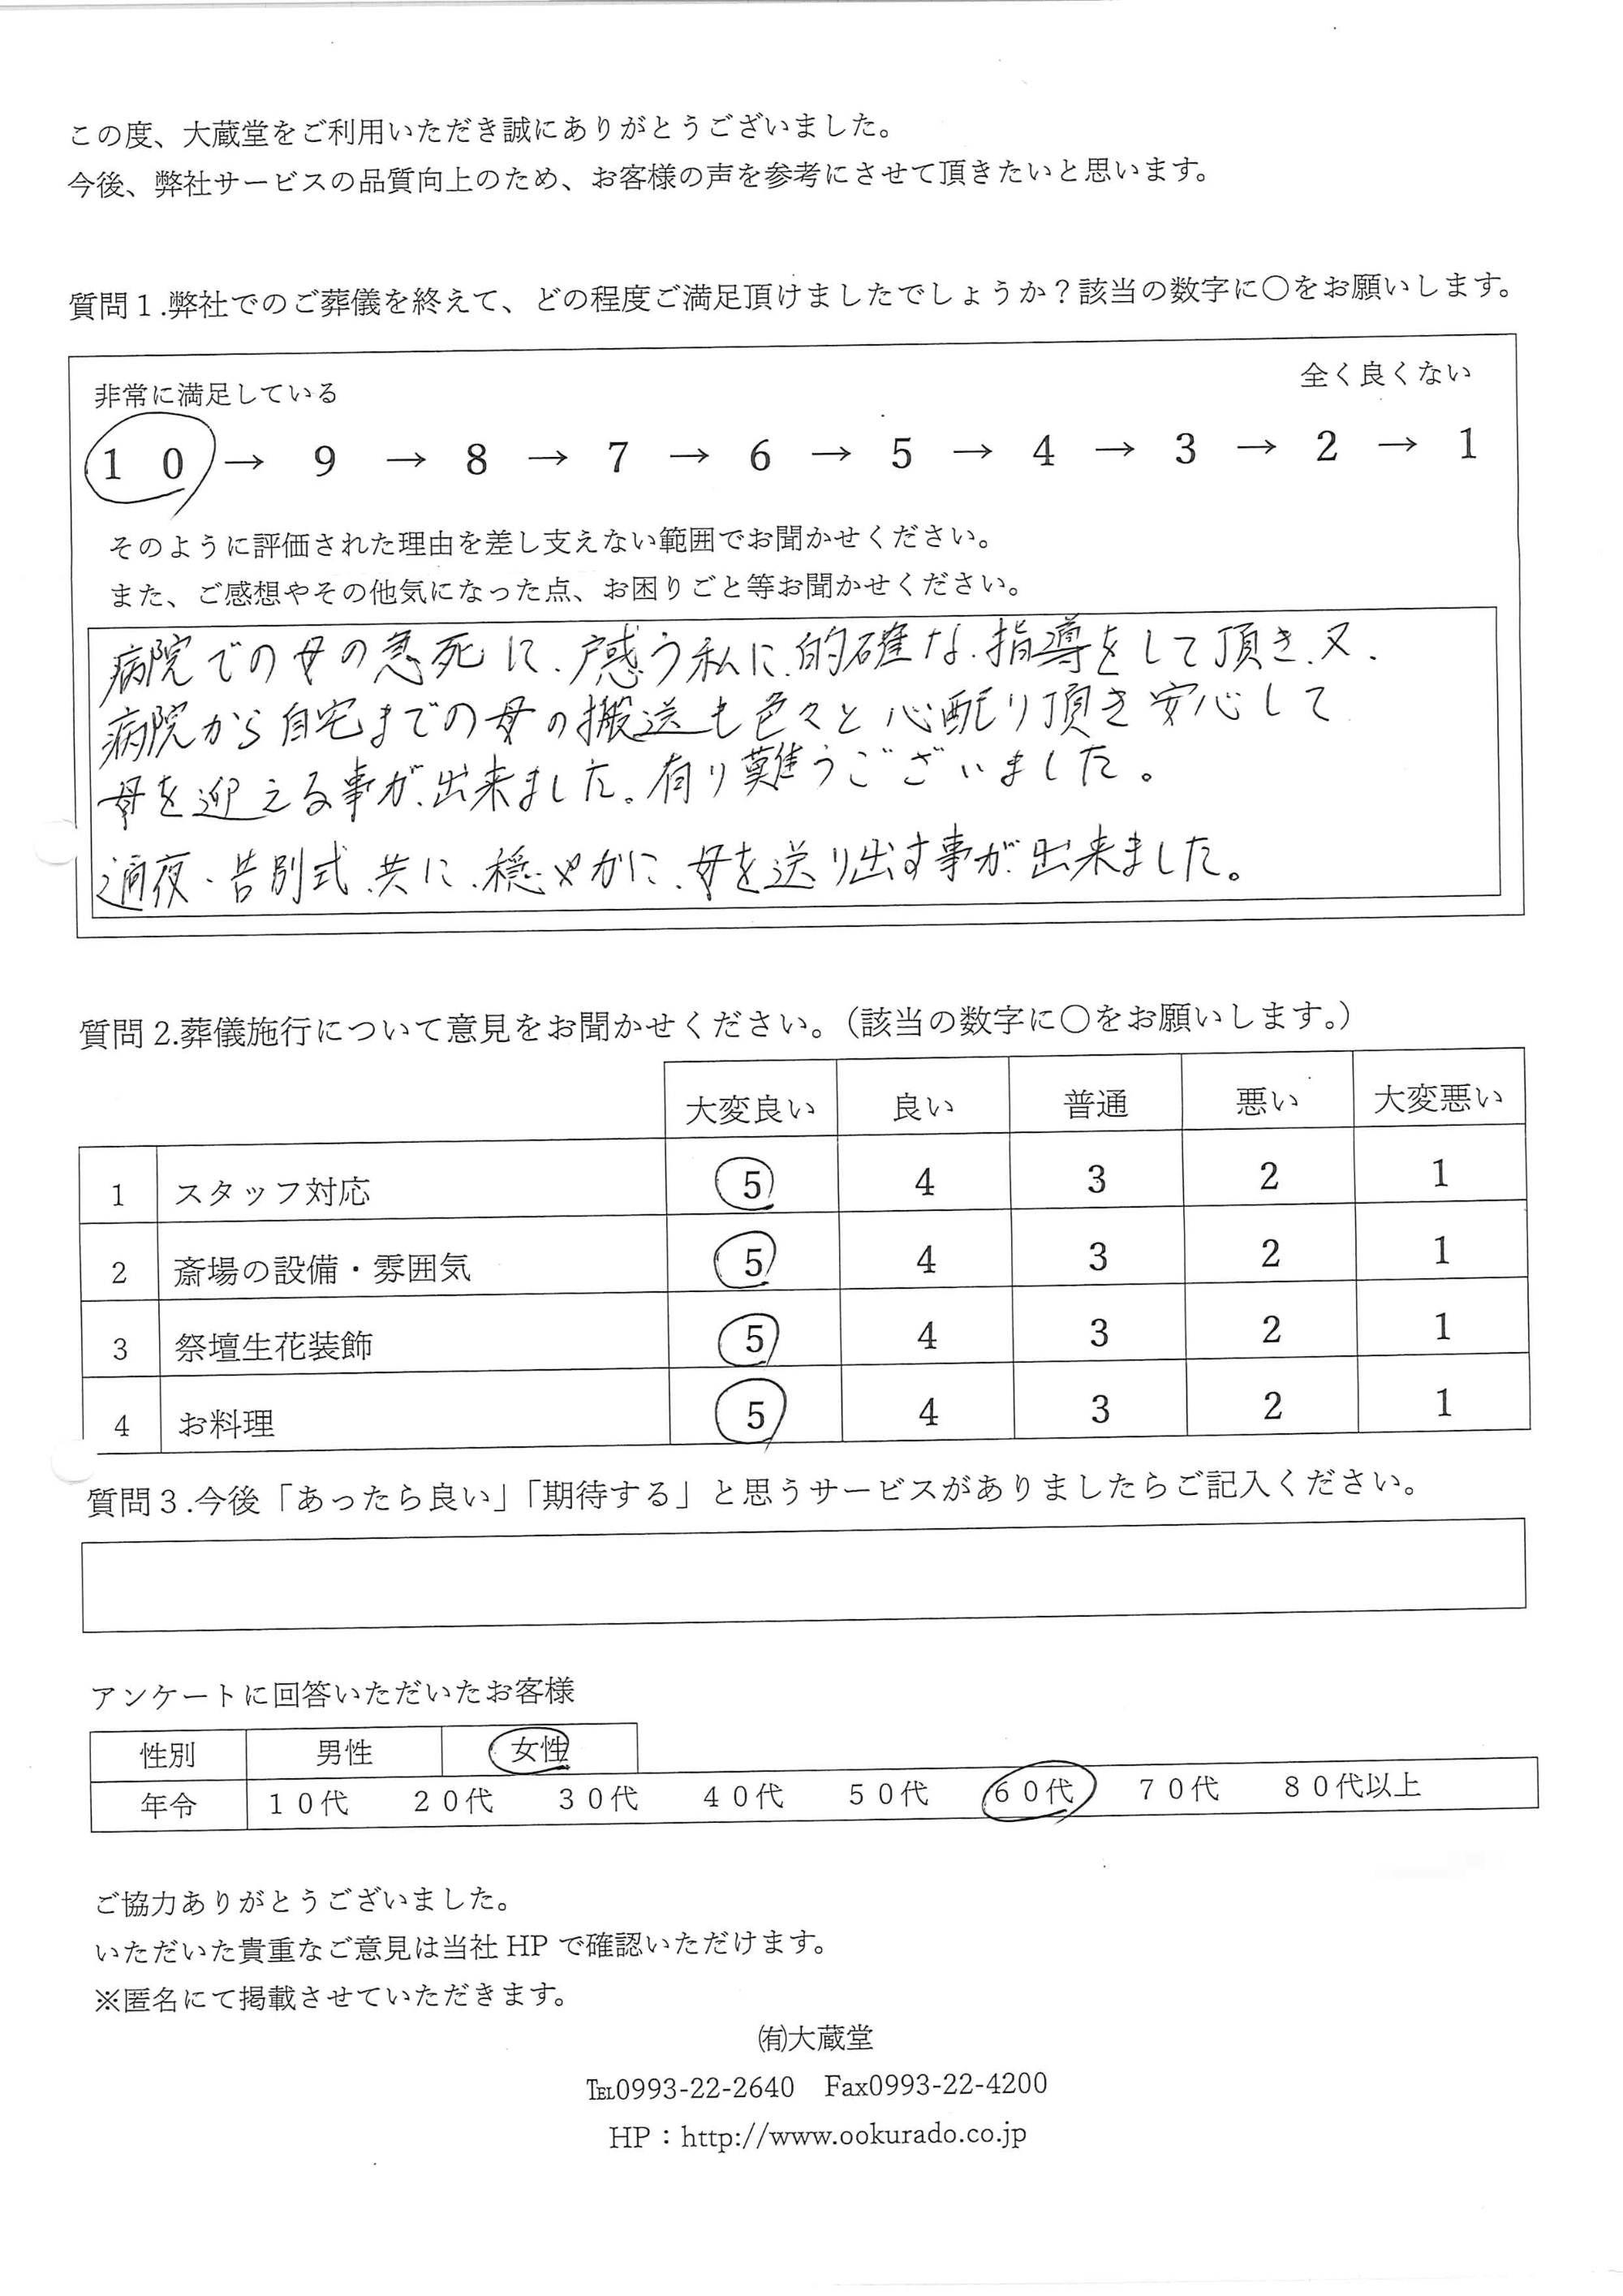 この度、大蔵堂をご利用いただき誠にありがとうございました。
今後、弊社サービスの品質向上のため、お客様の声を参考にさせて頂きたいと思います。
質問１.弊社でのご葬儀を終えて、どの程度ご満足頂けましたでしょうか？該当の数字に○をお願いします。
非常に満足している 全く良くない
１０→ 9 → 8 → 7 → 6 → 5 → 4 → 3 → 2 → 1
そのように評価された理由を差し支えない範囲でお聞かせください。
また、ご感想やその他気になった点、お困りごと等お聞かせください。
病院での母の急死に、戸惑う私に、的確な、指導をして頂き、又、
病院から自宅までの母の搬送も色々と心配り頂き安心して
母を迎える事が、出来ました。有り難うございました。
通夜・告別式、共に、穏やかに、母を送り出す事が、出来ました。
質問2.葬儀施行について意見をお聞かせください。（該当の数字に○をお願いします。）
大変良い 良い 普通 悪い 大変悪い
1 スタッフ対応 5 4 3 2 1
2 斎場の設備・雰囲気 5 4 3 2 1
3 祭壇生花装飾 5 4 3 2 1
4 お料理 5 4 3 2 1
質問３.今後「あったら良い」「期待する」と思うサービスがありましたらご記入ください。
アンケートに回答いただいたお客様
性別 男性 女性
年令 １０代 ２０代 ３０代 ４０代 ５０代 ６０代 ７０代 ８０代以上
ご協力ありがとうございました。
いただいた貴重なご意見は当社 HP で確認いただけます。
※匿名にて掲載させていただきます。
㈲大蔵堂
℡0993-22-2640 Fax0993-22-4200
HP：http://www.ookurado.co.jp